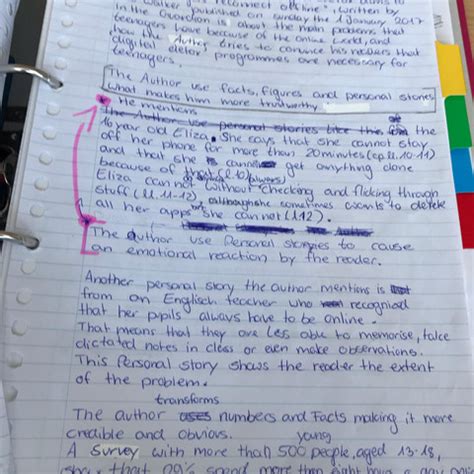 Walker
in the Guardian is about the main problems that
teenagers have because of the online world, and
how the Author tries to convince his readers that
digital detox programmes are necessary for
teenagers.
The Author use facts, figures and personal stories
what makes him more trustworthy
He mentions
the
16 year old Eliza. She says that she cannot stay
off her phone for more than 20 minutes
and that she cannot get anything done
because of
Eliza can not without checking and flicking through
stuff (ll. 11-12) although she sometimes wants to delete
all her apps she can not (l.12).
The Author use Personal stories to cause
an emotional reaction by the reader.
Another personal story the author mentions is
from an Englisch teacher who recognised
that her pupils always have to be online.
That means that they are less able to memorise, take
dictated notes in class or even make observations.
This Personal story shows the reader the extent
of the problem.
transforms
The author uses numbers and Facts making it more
credible and obvious.
young
A survey with more than 500 people, aged 13-18,